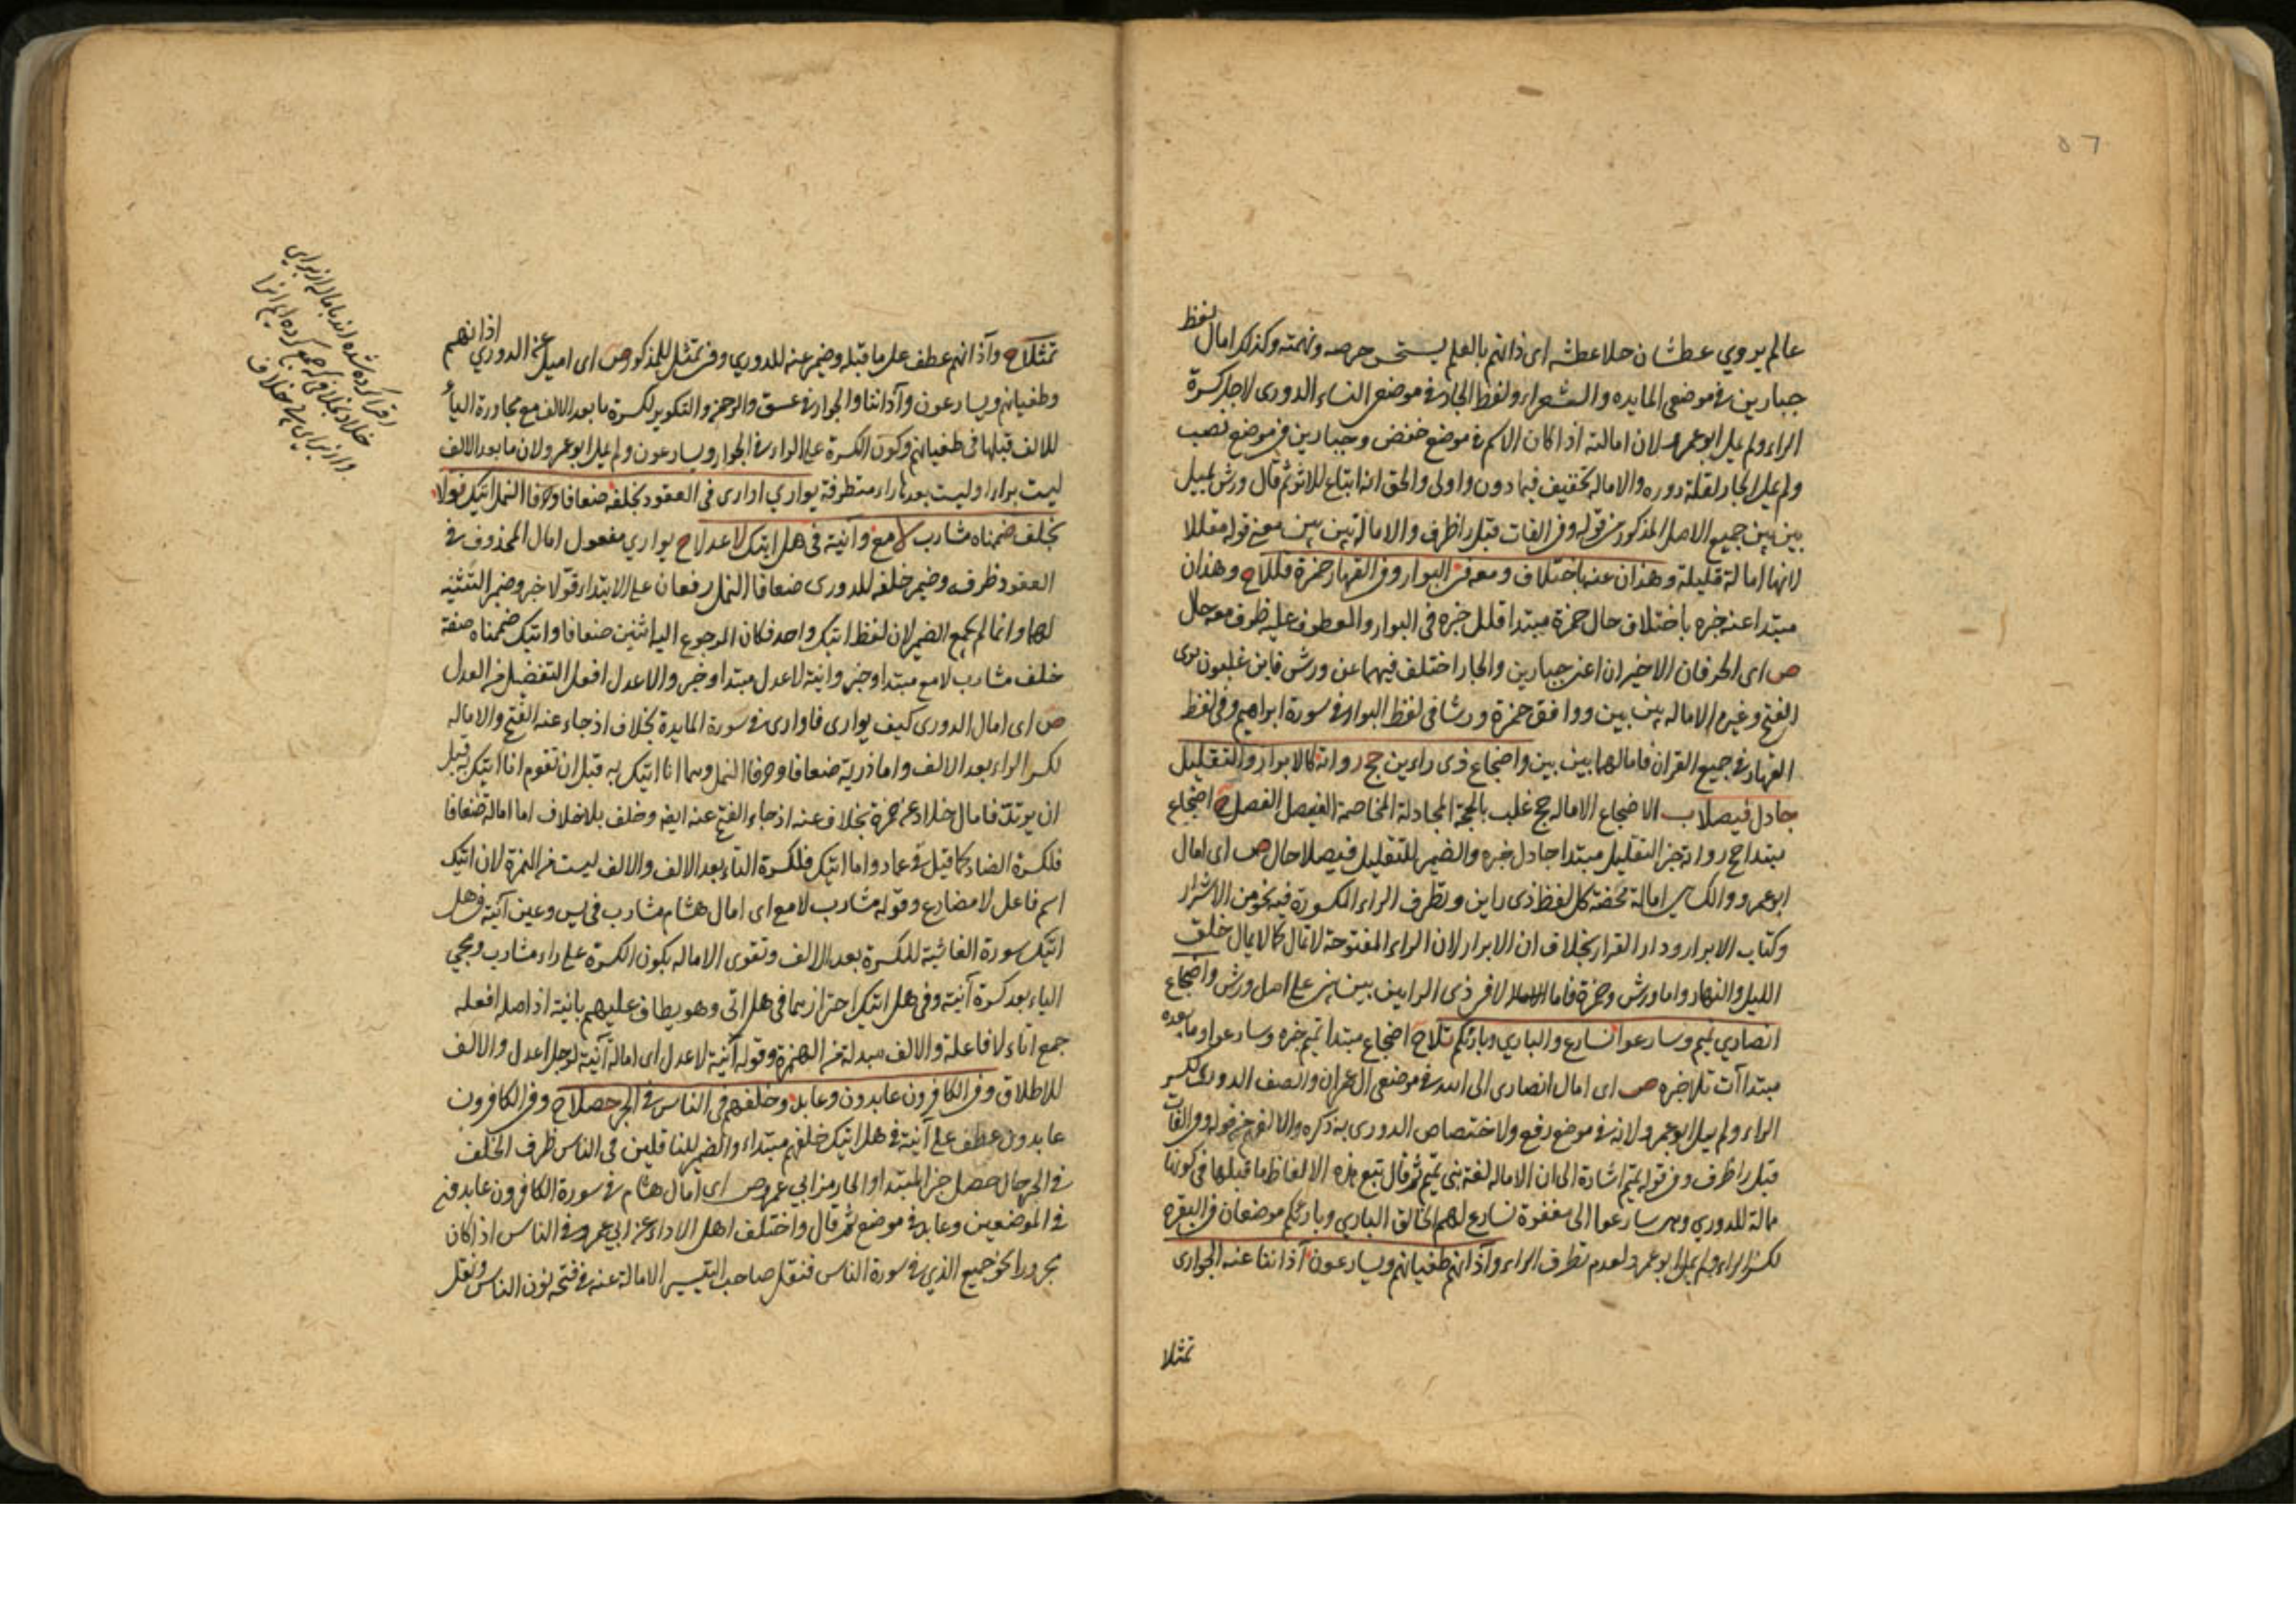 ٥٦
عالم يروي عطشان حلا عطشه اى ذاتهم بالعلم يستحق حرصه ونهمته وكذلك امال لفظ
جبارين في موضعى المايده والشعراء ولفظ الجار في موضعى النساء الدورى لاجل كسرة
الراء ولم يمل ابو عمرو لان امالته اذا كان الاسم في موضع خفض وجبارين في موضع نصب
ولم يمل الجار لقلة دوره والاماله تخفيف فيما دون واولى والحق انه اتباع للاثر ثم قال ورش يميل
بين بين جميع الاصل المذكور من قوله وفى الفات قبل را طرف والامالة بين بين معنى قوله مقللا
لانها امالة قليلة وهذان عنه باختلاف ومعه فى البوار وفى القهار حمزة قللا ح وهذان
مبتدا عنه خبره باختلاف حال حمزة مبتدا قلل خبره فى البوار والمعطوف عليه ظرف معه حال
ص اى الحرفان الاخيران اعنى جبارين والجار اختلف فيهما عن ورش فابن غلبون روى
الفتح وغيره الاماله بين بين ووافق حمزة ورشا فى لفظ البوار في سورة ابراهيم وفى لفظ
القهار في جميع القران فامالهما بين بين واضجاع ذى راءين حج رواته كالابرار والتقليل
جادل فيصلا ب الاضجاع الاماله حج غلب بالحجة المجادلة المخاصمة الفيصل الفصل ح اضجاع
مبتدا حج رواته خبر التقليل مبتدا جادل خبره والضمير للتقليل فيصلا حال ص اى امال
ابو عمرو والكسائى امالة محضة كل لفظ ذى راين وتطرف الراء المكسورة فيه نحو من الاشرار
وكتاب الابرار ودار القرار بخلاف ان الابرار لان الراء المفتوحة لا تمال كما لا يمال خلق
الليل والنهار واما ورش وحمزة فاما الامالا لا فى ذى الرايين بين بين على اصل ورش واضجاع
انصاري تميم وسارعوا نسارع والباري وبارئكم تلا ح اضجاع مبتدا تميم خبره وسارعوا وما بعده
مبتداآت تلا خبره ص اى امال انصارى الى الله في موضعى ال عمران والصف الدورى لكسر
الراء ولم يمل ابو عمرو لانه في موضع رفع ولاختصاص الدورى به ذكره والا لفهم من قوله وفى الفات
قبل را طرف وفى قوله تميم اشارة الى ان الاماله لغة بنى تميم ثم قال تبع هذه الالفاظ ما قبلها فى كونها
مالة للدوري وهى سارعوا الى مغفرة نسارع لهم الخالق الباري وبارئكم موضعان فى البقره
لكسر الراء ولم يمل ابو عمرو لعدم تطرف الراء واذانهم طغيانهم ويسارعون اذاننا عنه الجوارى
تمثلا
تمثلا ح واذانهم عطف على ما قبله وضمير عنه للدوري وفى تمثل للمذكور ص اى اميل عن الدوري اذانهم
وطغيانهم ويسارعون واذاننا والجوار في عسق والرحمن والتكوير لكسرة ما بعد الالف مع مجاورة اليأ
للالف قبلها فى طغيانهم وكون الكسرة على الراء في الجوار ويسارعون ولم يمل ابو عمرو لان ما بعد الالف
ليست براء او ليست بعدها راء متطرفة يواري اوارى فى العقود بخلفه ضعافا وحرفا النمل اتيك قولا
بخلف ضممناه مشارب لامع وانية فى هل اتيك لاعدلا ح يواري مفعول امال المحذوف في
العقود ظرفه وضمير خلفه للدورى ضعافا النمل رفعان على الابتداء قولا خبر وضمير التثنيه
لهما وانما لم يجمع الضمير لان لفظ اتيك واحد فكان المرجوع اليه اثنين ضعافا واتيك ضممناه صفة
خلف مشارب لامع مبتدا وخبر وانية لاعدل مبتدا وخبر والاعدل افعل التفضيل من العدل
ص اى امال الدورى كيف يوارى فاوارى في سورة المايدة بخلاف اذ جاء عنه الفتح والاماله
لكسر الراء بعد الالف واما ذرية ضعافا وحرفا النمل وهما انا اتيك به قبل ان تقوم انا اتيك به قبل
ان يرتد فامال خلاد عن حمزة بخلاف عنه اذ جاء الفتح عنه ايضه وخلف بلا خلاف اما امالة ضعافا
فلكسرة الضاد كما قيل فى عماد واما اتيك فلكسرة التاء بعد الالف والالف ليست من الهمزة لان اتيك
اسم فاعل لا مضارع وقوله مشارب لامع اى امال هشام مشارب فى يس وعين آنية فى هل
اتيك سورة الغاشية للكسرة بعد الالف وتقوى الاماله بكون الكسرة على راء مشارب ومجي
الياء بعد كسرة آنية وفى هل اتيك احتراز عما فى هل اتى وهو يطاف عليهم بانية اذ اصله افعله
جمع اناء لا فاعلة والالف مبدلة من الهمزة وقوله آنية لاعدل اى امالة آنية لرجل اعدل والالف
للاطلاق وفى الكافرون عابدون وعابد وخلفهم فى الناس في الجر حصلا ح وفى الكافرون
عابدون عطف على آنية في هل اتيك خلفهم مبتداء والضمير للناقلين فى الناس ظرف الخلف
فى الجر حال حصل خبر المبتدا والحا رمز ابي عمرو ص اى امال هشام في سورة الكافرون عابدون
فى الموضعين وعابد في موضع ثم قال واختلف اهل الاداء عن ابي عمرو في الناس اذا كان
مجرورا نحو جميع الذي في سورة الناس فنقل صاحب التيسير الامالة عنه في فتحه نون الناس ونقل